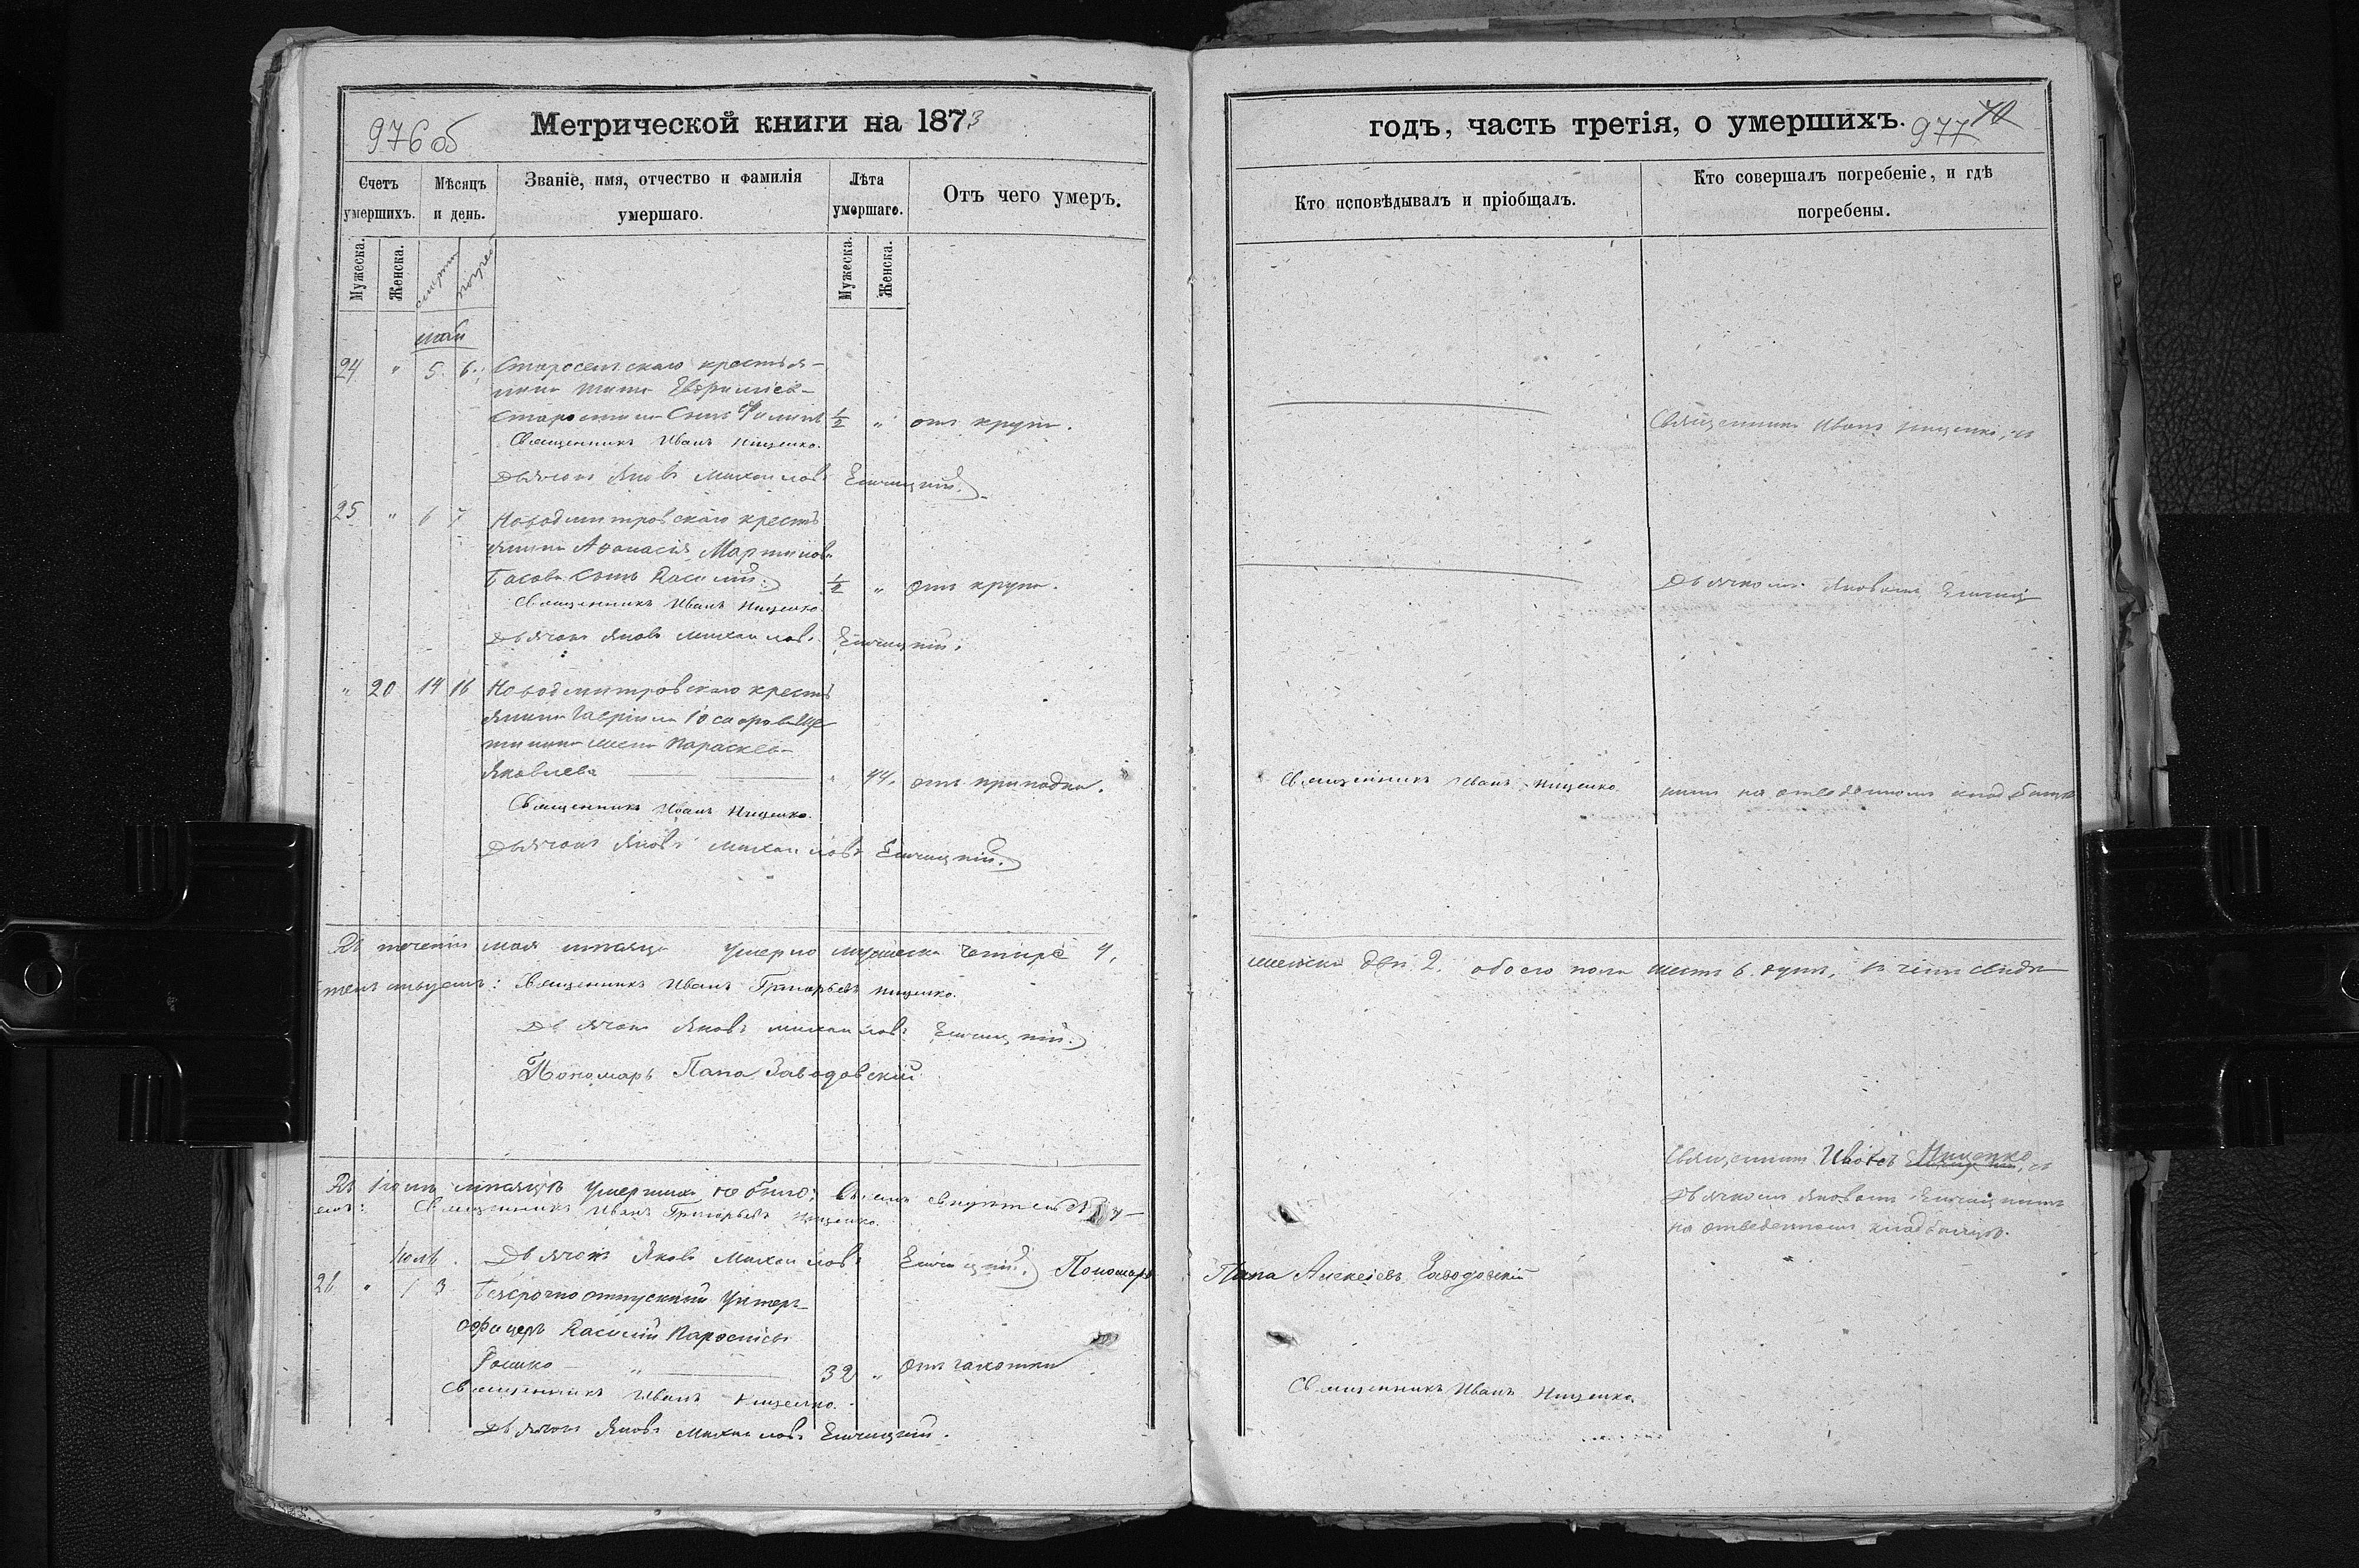 976 об
Метрической книги на 1873
Счетъ умершихъ.
Мѣсяцъ и день.
Званіе, имя, отчество и фамилія умершаго.
Лѣта умершаго.
Отъ чего умеръ.
Мужеска.
Женска.
смерти
погреб
Мужеска.
Женска.
май
24 " 5. 6.
крестья-
нина
сынъ Филипъ 1/2 " отъ круп.
Священникъ Иванъ Нищенко.
Дьячокъ Яковъ Михаиловъ
25 " 6 7 Новодмитровскаго кресть
янина Афанасія Мартинова
Басова сынъ Василій 1/2 " отъ круп.
Священникъ Иванъ Нищенко
Дьячокъ Яковъ Михаилов.
" 20 14 16 Новодмитровскаго кресть
янина Гавріила
жена Параскева
Яковлева " 44. отъ припадка.
Священникъ Иванъ Нищенко.
Дьячокъ Яковъ Михаиловъ
Въ теченіи мая мѣсяца умерло мужеска четыре 4,
тельствуемъ: Священникъ Иванъ Григорьевъ Нищенко.
Дьячокъ Яковъ Михаиловъ
Пономарь Папа Заводовскій
Въ Іюнѣ мѣсяцѣ умершихъ не было;
емъ: Священникъ Иванъ Григорьевъ Нищенко.
Іюль. Дьячокъ Яковъ Михаиловъ Пономарь
26 " 1 3 Безсрочно отпускний Унтеръ-
офицеръ Василій
32 " отъ чахотки
Священникъ Иванъ Нищенко.
Дьячокъ Яковъ Михаиловъ
годъ, часть третія, о умершихъ.
977
70
Кто исповѣдывалъ и пріобщалъ.
Кто совершалъ погребеніе, и гдѣ погребены.
Священникъ Иванъ Нищенко, съ
Дьячкомъ Яковомъ
Священникъ Иванъ Нищенко
на отведенномъ кладбищѣ
женска двѣ 2. обоего пола шесть 6. душъ, въ чемъ свидѣ
Священникъ Иванъ Нищенко, съ
Дьячкомъ Яковомъ
на отведенномъ кладбищѣ.
Папа Алексіевъ Заводовскій
Священникъ Иванъ Нищенко.